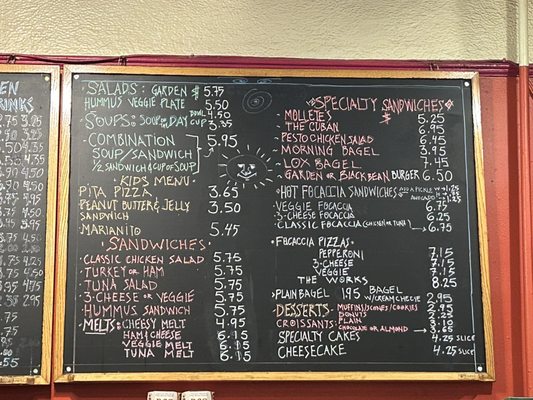 SALADS: GARDEN $5.75
HUMMUS VEGGIE PLATE 5.50
SOUPS: SOUP OF DAY BOWL 4.50
CUP 3.95
COMBINATION 5.95
SOUP/SANDWICH
1/2 SANDWICH & CUP OF SOUP
KIDS MENU
PITA PIZZA 3.65
PEANUT BUTTER & JELLY 3.50
SANDWICH
MARIANITO 5.45
SANDWICHES
CLASSIC CHICKEN SALAD 5.75
TURKEY OR HAM 5.75
TUNA SALAD 5.75
3-CHEESE OR VEGGIE 5.75
HUMMUS SANDWICH 5.75
MELTS: CHEESY MELT 4.95
HAM & CHEESE 6.15
VEGGIE MELT 6.15
TUNA MELT 6.15
SPECIALTY SANDWICHES
MOLLETES $5.25
THE CUBAN 6.95
PESTO CHICKEN SALAD 6.45
MORNING BAGEL 3.95
LOX BAGEL 7.45
GARDEN OR BLACK BEAN BURGER 6.50
HOT FOCACCIA SANDWICHES
VEGGIE FOCACCIA 6.75
3-CHEESE FOCACCIA 6.25
CLASSIC FOCACCIA (CHICKEN OR TUNA) 6.75
FOCACCIA PIZZAS
PEPPERONI 7.15
3-CHEESE 7.15
VEGGIE 7.15
THE WORKS 8.25
PLAIN BAGEL 1.95 BAGEL W/CREAM CHEESE 2.95
DESSERTS: MUFFINS/SCONES/COOKIES
DONUTS
CROISSANTS: PLAIN
CHOCOLATE OR ALMOND 3.65
SPECIALTY CAKES 4.25 SLICE
CHEESECAKE 4.25 SLICE